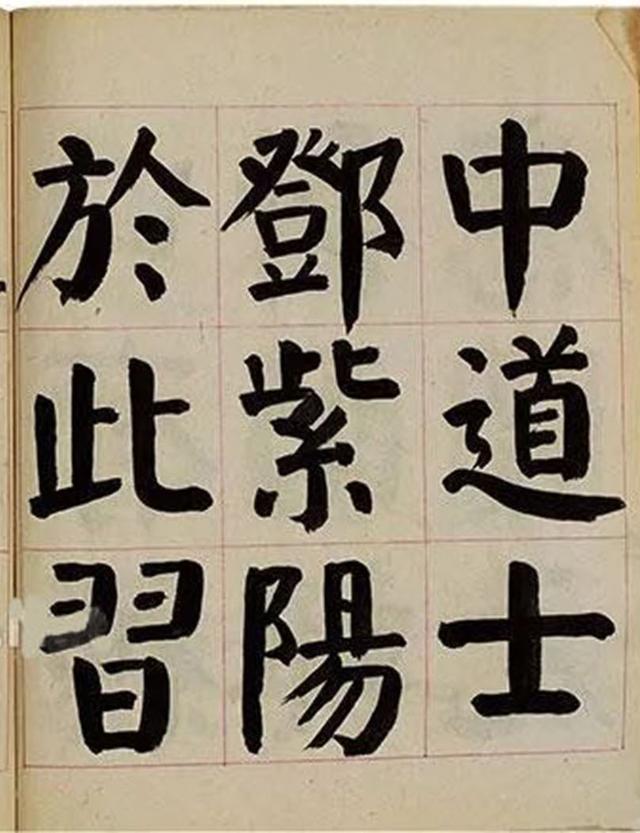 中道士
鄧紫陽
於此習